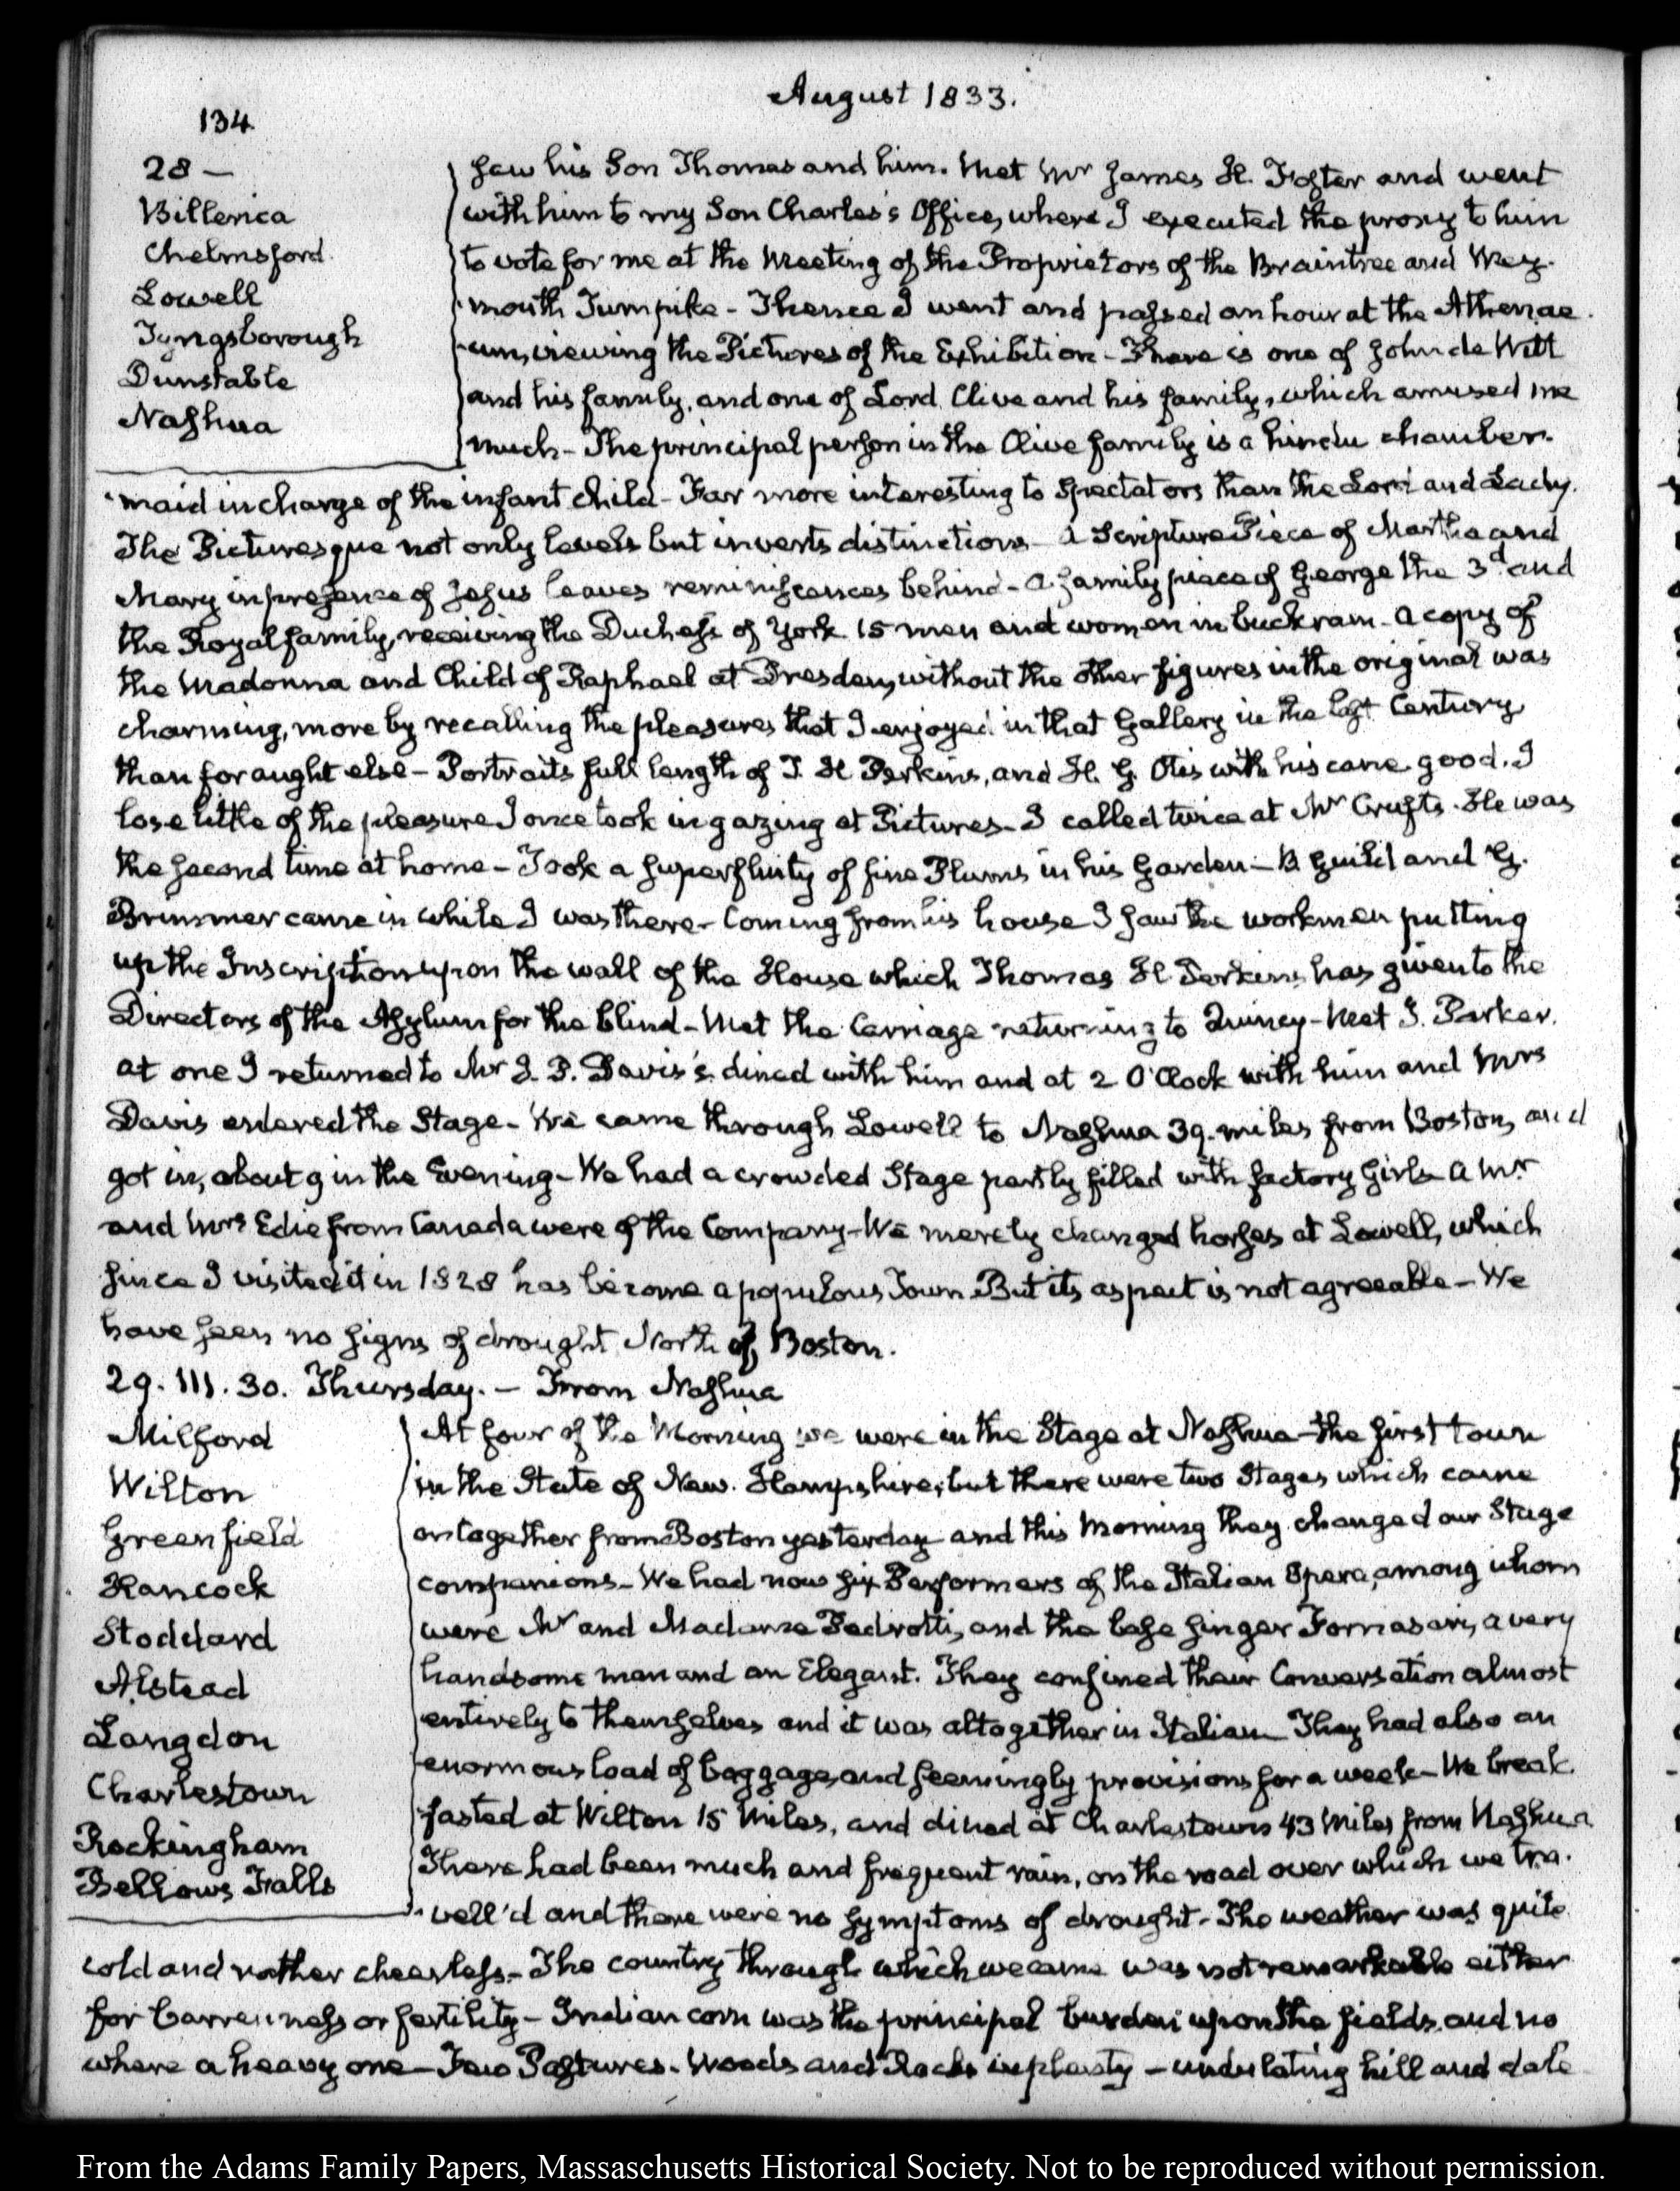 August 1833.
134
28 —
Billerica
Chelmsford.
Lowell
Tyngsborough
Dunstable
Nashua
saw his Son Thomas and him. Met Mr James H. Foster and went
with him to my Son Charles's Office, where I executed the proxy to him
to vote for me at the Meeting of the Proprietors of the Braintree and Wey-
mouth Turnpike - Thence I went and passed an hour at the Athenae-
-um, viewing the Pictures of the Exhibition - There is one of John de Witt
and his family, and one of Lord Clive and his family, which amused me
much - The principal person in the Clive family is a hindu chamber-
-maid in charge of the infant child - Far more interesting to Spectators than the Lord and Lady.
The Picturesque not only levels but inverts distinctions - a Scripture Piece of Martha and
Mary in presence of Jesus leaves reminiscences behind - a family piece of George the 3d and
the Royal family, receiving the Duchess of York 15 men and women in buckram - a copy of
the Madonna and Child of Raphael at Dresden, without the other figures in the original was
charming, more by recalling the pleasures that I enjoyed in that Gallery in the last Century
than for aught else - Portraits full length of T. H. Perkins, and H. G. Otis with his cane good. I
lose little of the pleasure I once took in gazing at Pictures - I called twice at Mr Crufts. He was
the second time at home - Took a superfluity of fine Plums in his Garden - B Guild and G.
Brimmer came in while I was there - Coming from his house I saw the workmen putting
up the Inscription upon the wall of the House which Thomas H Perkins has given to the
Directors of the Asylum for the blind - Met the Carriage returning to Quincy - Met J. Parker.
at one I returned to Mr I. P. Davis's. dined with him and at 2 O'Clock with him and Mrs
Davis entered the Stage - We came through Lowell to Nashua 39. miles from Boston, and
got in, about 9 in the Evening - We had a crowded Stage partly filled with factory Girls - a Mr
and Mrs Edie from Canada were of the Company - We merely changed horses at Lowell, which
since I visited it in 1828 has become a populous Town. But its aspect is not agreeable - We
have seen no signs of drought North of Boston.
29. III. 30. Thursday. - From Nashua
Milford
Wilton
Greenfield
Hancock
Stoddard
Alstead
Langdon
Charlestown
Rockingham
Bellows Falls
At four of the Morning we were in the Stage at Nashua - the first town
in the State of New. Hampshire; but there were two Stages which came
on together from Boston yesterday and this Morning they changed our Stage
companions - We had now six Performers of the Italian Opera, among whom
were Mr and Madame Pedrotti, and the base singer Fornasari, a very
handsome man and an Elegant. They confined their Conversation almost
entively to themselves and it was altogether in Italian - They had also an
enormous load of baggage, and seemingly provisions for a week - We break-
-fasted at Wilton 15 Miles, and dined at Charlestown 43 Miles from Nashua
There had been much and frequent rain, on the road over which we tra-
-vell'd and there were no symptoms of drought - The weather was quite
cold and rather cheerless - The country through which we came was not remarkable either
for barrenness or fertility - Indian corn was the principal burden upon the fields, and no
where a heavy one - Few Pastures - Woods and Rocks in plenty - undulating hill and dale
From the Adams Family Papers, Massachusetts Historical Society. Not to be reproduced without permission.